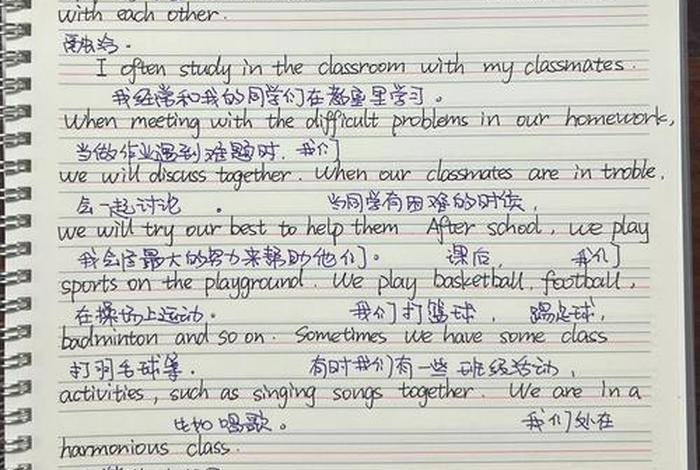 with each other.
融洽。
I often study in the classroom with my classmates.
我经常和我的同学们在教室里学习。
When meeting with the difficult problems in our homework,
当做作业遇到难题时，我们
we will discuss together. When our classmates are in troble,
会一起讨论。 当同学有困难的时候，
we will try our best to help them After school, we play
我会尽最大的努力来帮助他们。 课后， 我们
sports on the playground. We play basketball, football,
在操场上运动。 我们打篮球， 踢足球，
badminton and so on. Sometimes we have some class
打羽毛球等。 有时我们有一些班级活动，
activities, such as singing songs together. We are in a
比如唱歌。 我们处在
harmonious class.